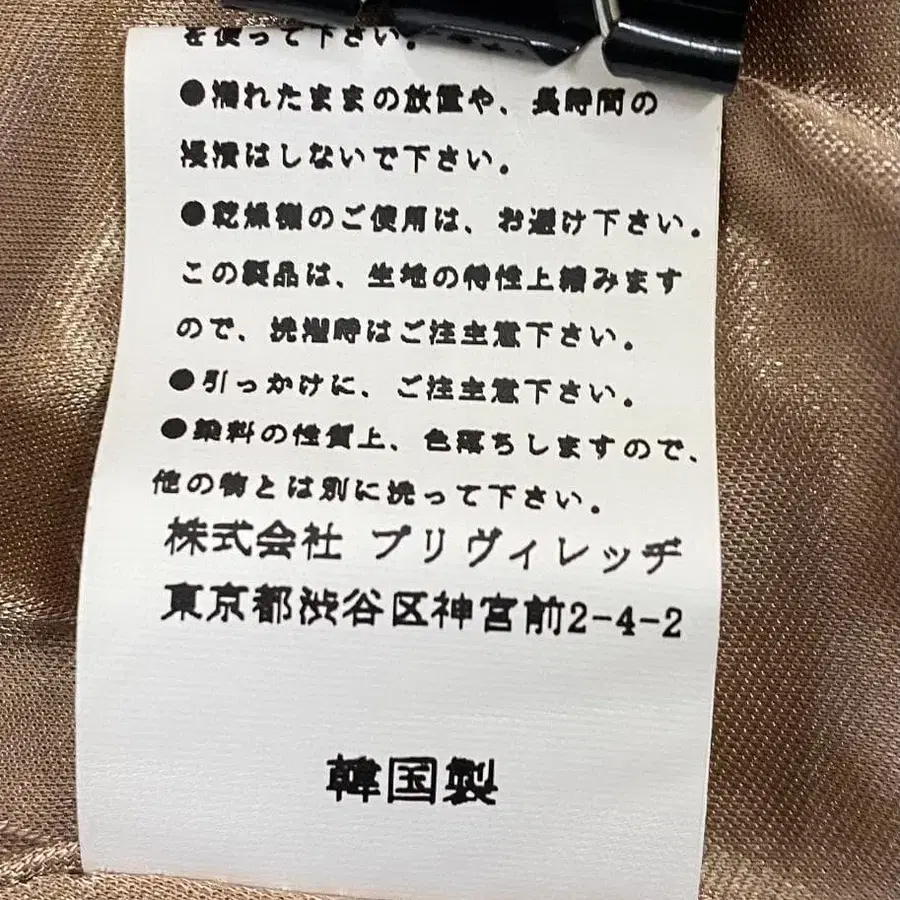 を使って下さい。
●濡れたままの放置や、長時間の
浸漬はしないで下さい。
●乾燥機のご使用は、お避け下さい。
この製品は、生地の特性上縮みます
ので、洗濯時はご注主意下さい。
●引っかけに、ご注主意下さい。
●染料の性質上、色落ちしますので、
他の物とは別に洗って下さい。
株式会社 プリヴィレッヂ
東京都渋谷区神宮前2-4-2
韓国製